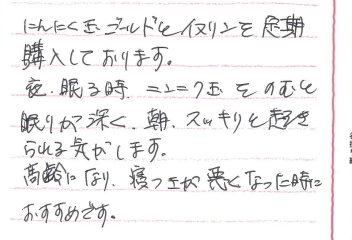 にんにく玉ゴールドとイヌリンを定期
購入しております。
夜、眠る時 ニンニク玉をのむと
眠りが深く、朝、スッキリと起き
られる気がします。
高齢になり、寝つきが悪くなった時に
おすすめです。